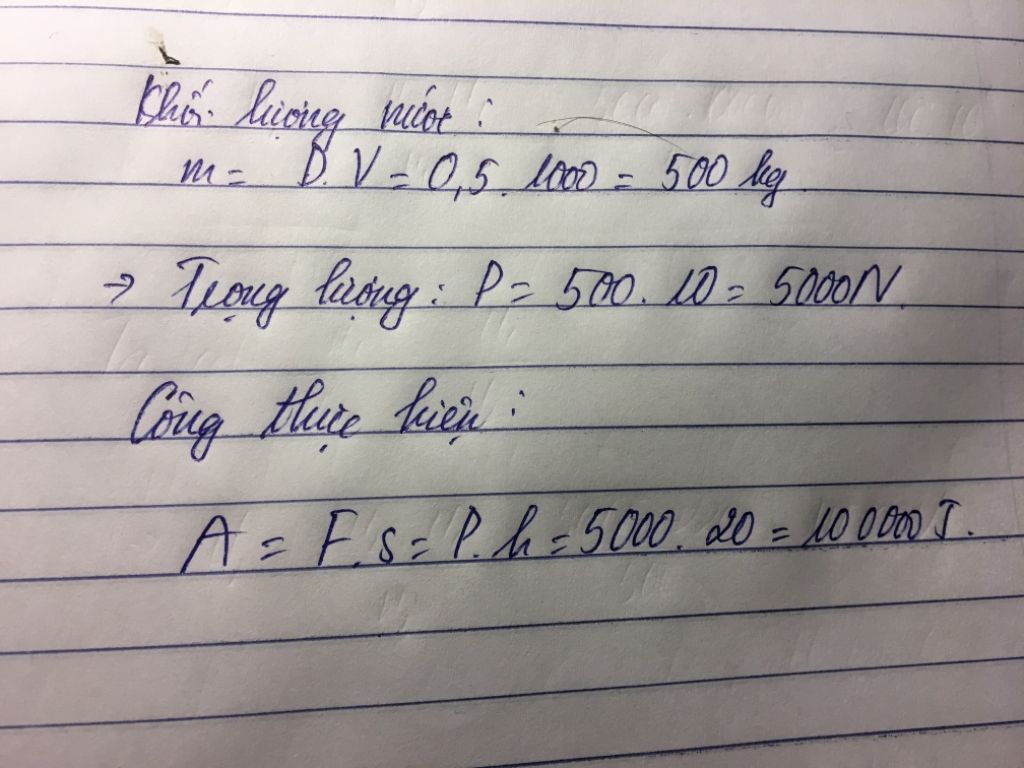 Khối lượng nước :
m = D.V = 0,5 . 1000 = 500 kg.
→ Trọng lượng : P = 500 . 10 = 5000N.
Công thực hiện :
A = F.s = P.h = 5000 . 20 = 100000J.